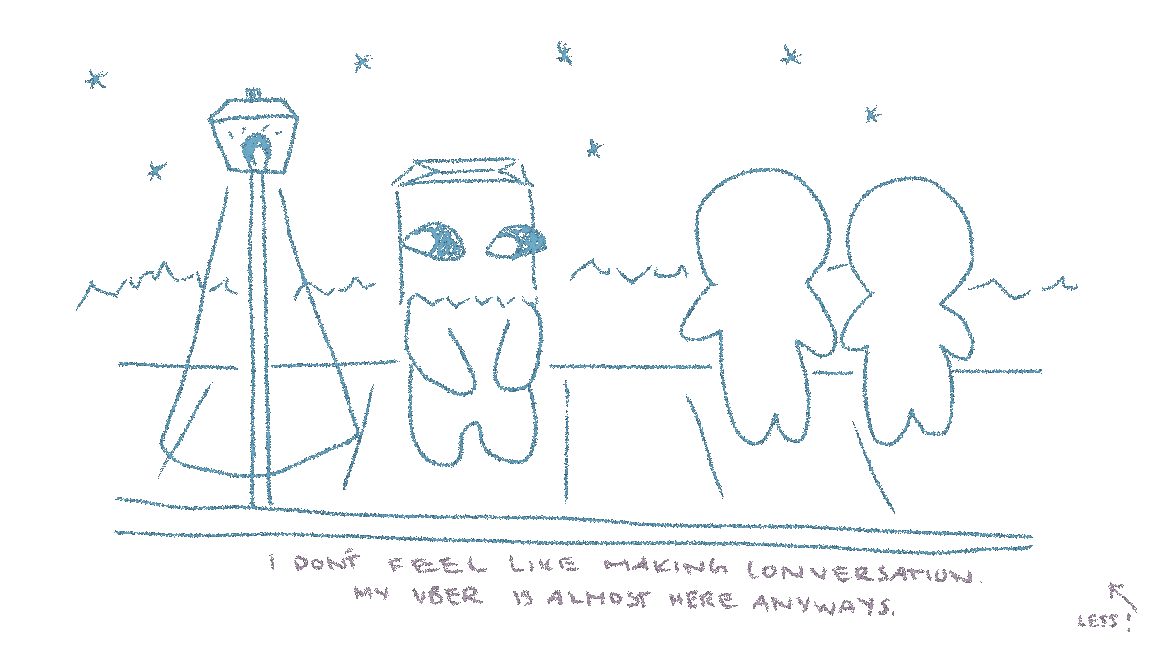 I DON'T FEEL LIKE MAKING CONVERSATION.
MY UBER IS ALMOST HERE ANYWAYS.
LESS!